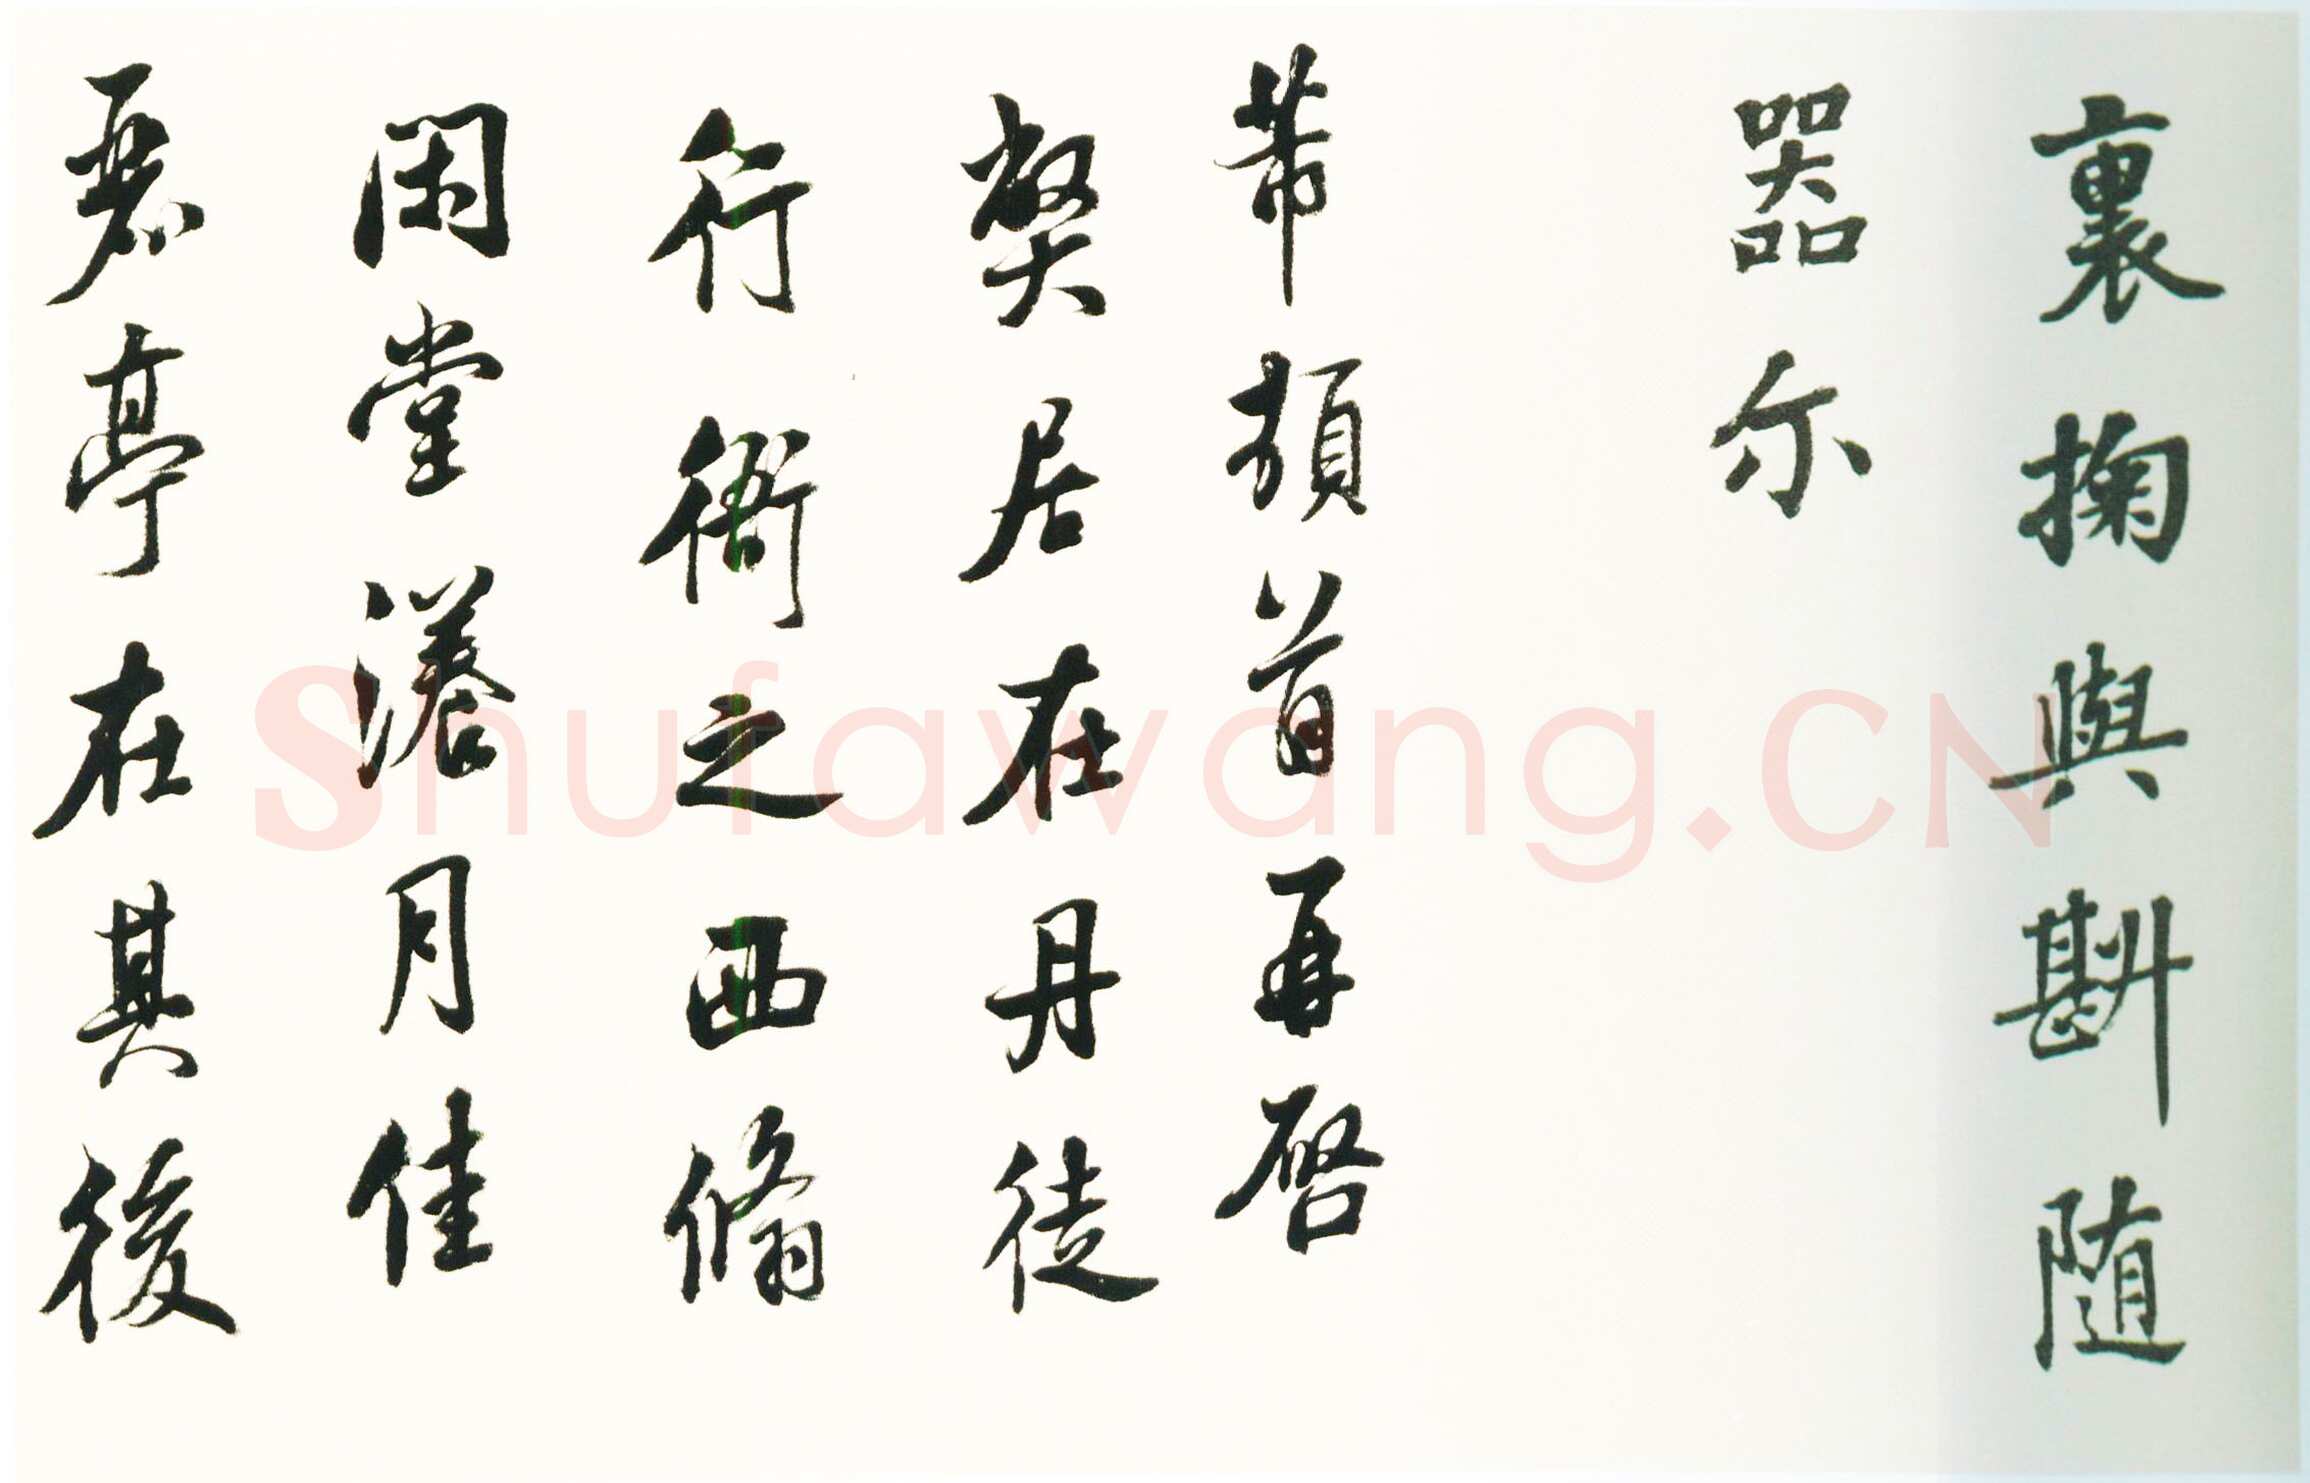 裏掬與斟随
器尔
芾頓首再啓
弊居在丹徒
行衙之西翛
閑堂漾月佳
麗亭在其後
Shufawang.CN